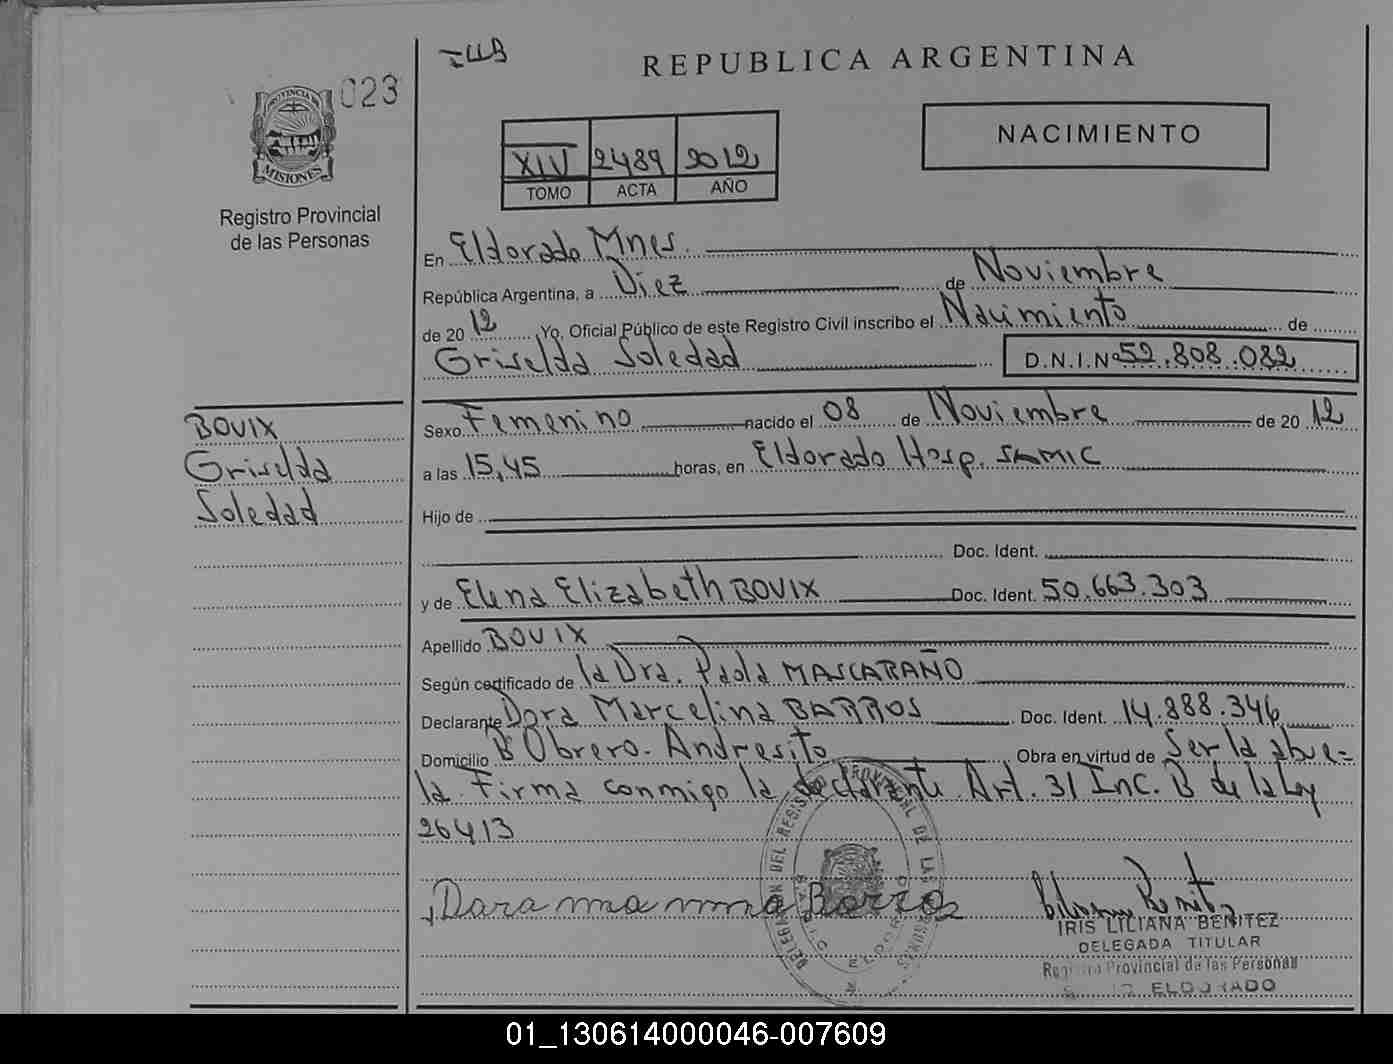 023
PROVINCIA DE
MISIONES
Registro Provincial
de las Personas
REPUBLICA ARGENTINA
NACIMIENTO
XIV 2489 2012
TOMO ACTA AÑO
En Eldorado Mnes.
República Argentina, a Diez de Noviembre
de 2012 Yo, Oficial Público de este Registro Civil inscribo el Nacimiento de
Griselda Soledad D.N.I.Nº 52.808.082
BOVIX
Griselda
Soledad
Sexo Femenino nacido el 08 de Noviembre de 2012
a las 15,45 horas, en Eldorado Hosp. SAMIC
Hijo de
Doc. Ident.
y de Elena Elizabeth BOVIX Doc. Ident. 50.663.303
Apellido BOVIX
Según certificado de la Dra. Paola MASCARAÑO
Declarante Dora Marcelina BARROS Doc. Ident. 14.888.346
Domicilio Bº Obrero. Andresito Obra en virtud de Ser la abue=
la. Firma conmigo la declarante Art. 31 Inc. B de la Ley
26413
DELEGACION DEL REGISTRO PROVINCIAL DE LAS PERSONAS
ELDORADO
IRIS LILIANA BENITEZ
DELEGADA TITULAR
Registro Provincial de las Personas
ELDORADO
01_130614000046-007609